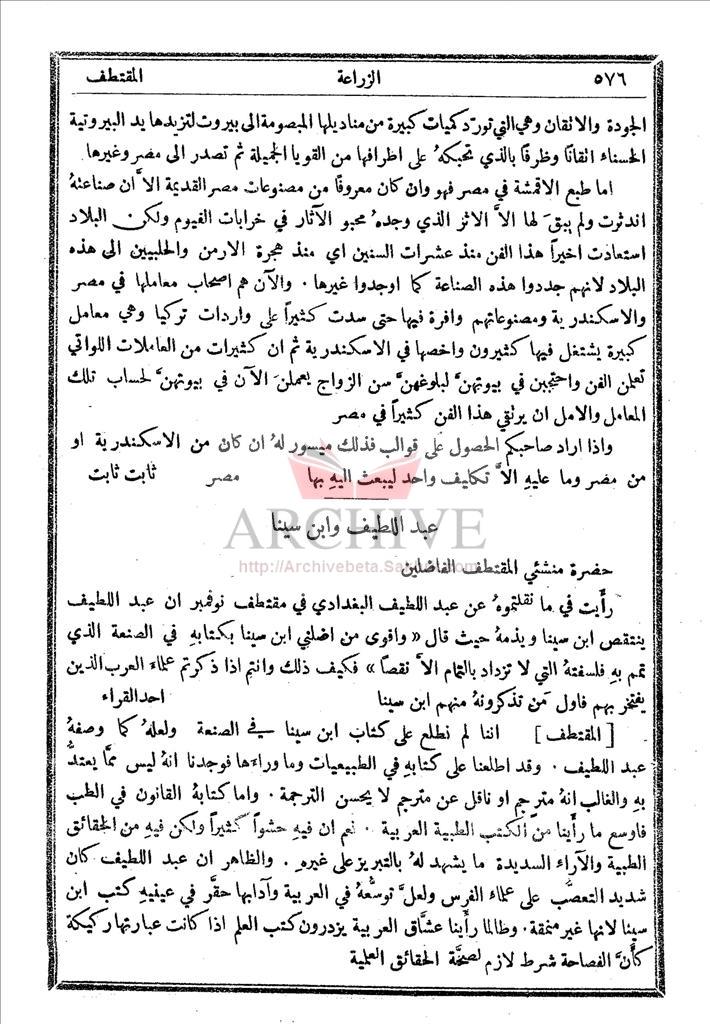 ٥٧٦ الزراعة المقتطف
الجودة والاتقان وهي التي تورّد كميات كبيرة من مناديلها المبصومة الى بيروت لتزيدها يد البيروتية
الحسناء اتقانًا وظرفًا بالذي تحبكهُ على اطرافها من القويا الجميلة ثم تصدر الى مصر وغيرها
اما طبع الاقمشة في مصر فهو وان كان معروفًا من مصنوعات مصر القديمة الاَّ ان صناعتهُ
اندثرت ولم يبقَ لها الاَّ الاثر الذي وجدهُ محبو الآثار في خرابات الفيوم ولكن البلاد
استعادت اخيراً هذا الفن منذ عشرات السنين اي منذ هجرة الارمن والحلبيين الى هذه
البلاد لانهم جددوا هذه الصناعة كما اوجدوا غيرها . والآن هم اصحاب معاملها في مصر
والاسكندرية ومصنوعاتهم وافرة فيها حتى سدت كثيراً على واردات تركيا وهي معامل
كبيرة يشتغل فيها كثيرون واخصها في الاسكندرية ثم ان كثيرات من العاملات اللواتي
تعلمن الفن واحتجبن في بيوتهنَّ لبلوغهنَّ سن الزواج يعملنَ الآن في بيوتهنَّ لحساب تلك
المعامل والامل ان يرتقي هذا الفن كثيراً في مصر
واذا اراد صاحبكم الحصول على قوالب فذلك ميسور لهُ ان كان من الاسكندرية او
من مصر وما عليهِ الاَّ تكليف واحد ليبعث اليهِ بها مصر ثابت ثابت
ARCHIVE
عبد اللطيف وابن سينا
http://Archivebeta.Sakhrit.com
حضرة منشئي المقتطف الفاضلين
رأَيت في ما نقلتموهُ عن عبد اللطيف البغدادي في مقتطف نوفمبر ان عبد اللطيف
ينتقص ابن سينا ويذمهُ حيث قال « واقوى من اضلني ابن سينا بكتابهِ في الصنعة الذي
تمم بهِ فلسفتهُ التي لا تزداد بالتمام الاَّ نقصاً » فكيف ذلك وانتم اذا ذكرتم علماء العرب الذين
يفتخر بهم فاول مَن تذكرونهُ منهم ابن سينا احد القراء
[ المقتطف ] اننا لم نطلع على كتاب ابن سينا في الصنعة ولعلهُ كما وصفهُ
عبد اللطيف . وقد اطلعنا على كتابهِ في الطبيعيات وما وراءَها فوجدنا انهُ ليس ممَّا يعتدُّ
بهِ والغالب انهُ مترجم او ناقل عن مترجم لا يحسن الترجمة . واما كتابهُ القانون في الطب
فاوسع ما رأَينا من الكتب الطبية العربية . نعم ان فيهِ حشواً كثيراً ولكن فيهِ من الحقائق
الطبية والآراء السديدة ما يشهد لهُ بالتبريز على غيرهِ . والظاهر ان عبد اللطيف كان
شديد التعصُّب على علماء الفرس ولعلَّ توسُّعهُ في العربية وآدابها حقَّر في عينيهِ كتب ابن
سينا لانها غير منمقة . وطالما رأَينا عشَّاق العربية يزدرون كتب العلم اذا كانت عبارتها ركيكة
كأَنَّ الفصاحة شرط لازم لصحَّة الحقائق العلمية